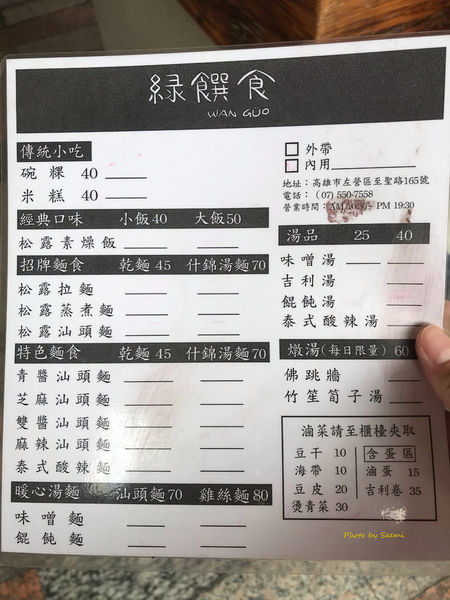 綠饌食
WAN GUO
傳統小吃
碗粿 40
米糕 40
經典口味 小飯40 大飯50
松露素燥飯
招牌麵食 乾麵45 什錦湯麵70
松露拉麵
松露蒸煮麵
松露汕頭麵
特色麵食 乾麵45 什錦湯麵70
青醬汕頭麵
芝麻汕頭麵
雙醬汕頭麵
麻辣汕頭麵
泰式酸辣麵
暖心湯麵 汕頭麵70 雞絲麵80
味噌麵
餛飩麵
外帶
內用
地址：高雄市左營區至聖路165號
電話：(07) 550-7558
營業時間：AM 10:30- PM 19:30
湯品 25 40
味噌湯
吉利湯
餛飩湯
泰式酸辣湯
燉湯(每日限量) 60
佛跳牆
竹笙筍子湯
滷菜請至櫃檯夾取
豆干 10
海帶 10
豆皮 20
燙青菜 30
含蛋區
滷蛋 15
吉利卷 35
Photo by Saemi